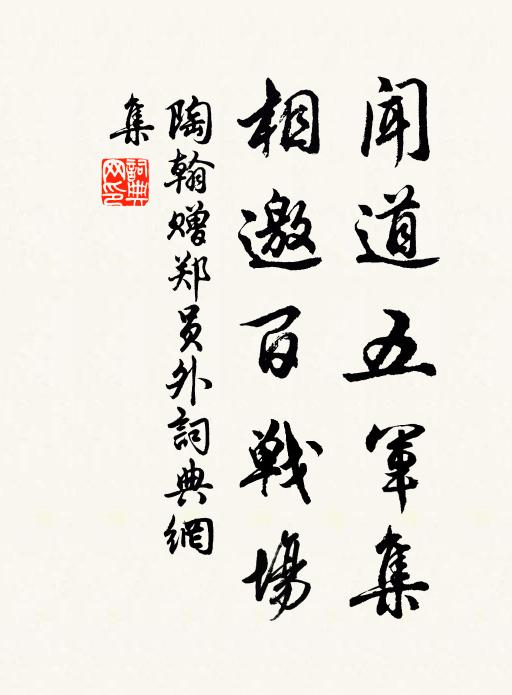 闻道五军集
相邀百戦場
陶翰赠郑员外詞典網
集
詞典
网印